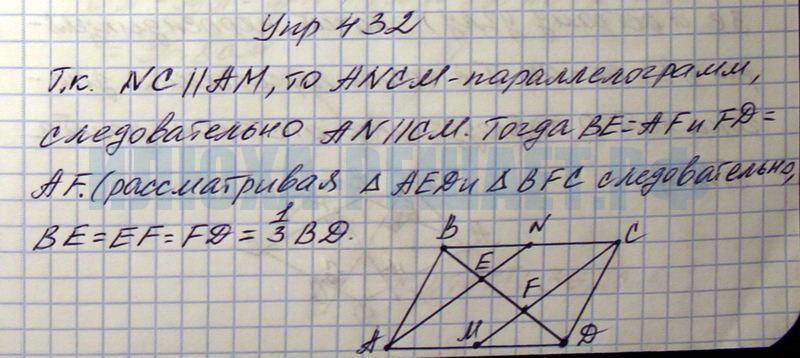 Упр 432
Т.к. NC//AM, то ANCM-параллелограмм,
следовательно AN//CM. Тогда BE=AF и FD=
AF. (рассматривая Δ AED и Δ BFC следовательно,
BE=EF=FD=1/3 BD.
B N C
E
F
A M D